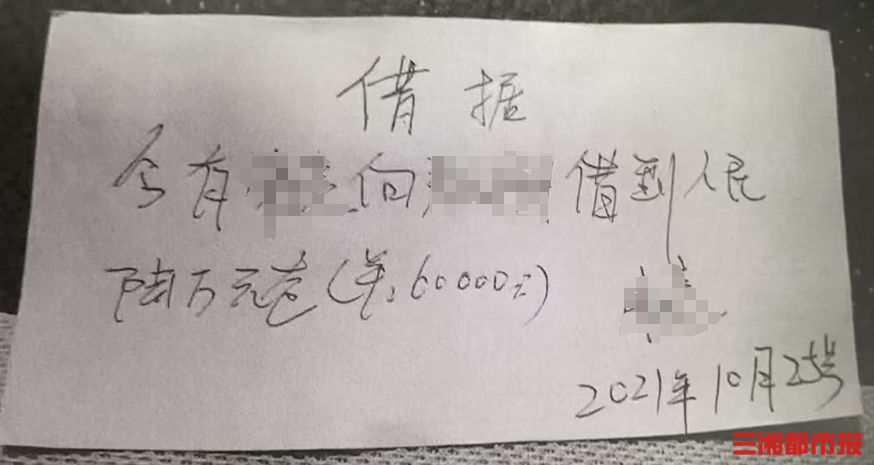 借据
今有 向 借到人民
陆万元志(￥:60000元)
2021年10月25号
三湘都市报